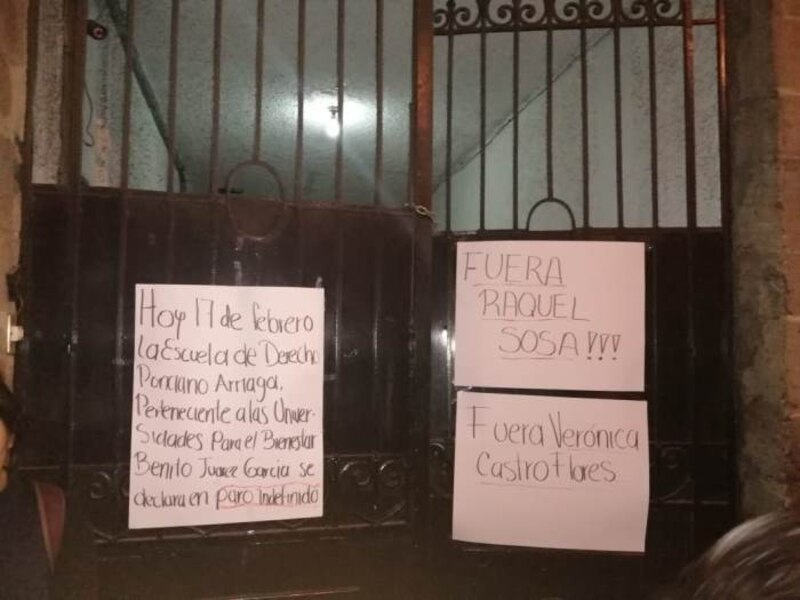 Hoy 17 de febrero
la Escuela de Derecho
Ponciano Arriaga,
Perteneciente a las Univer-
sidades Para el Bienestar
Benito Juarez Garcia se
declara en paro Indefinido
FUERA
RAQUEL
SOSA!!!
Fuera Verónica
Castro Flores